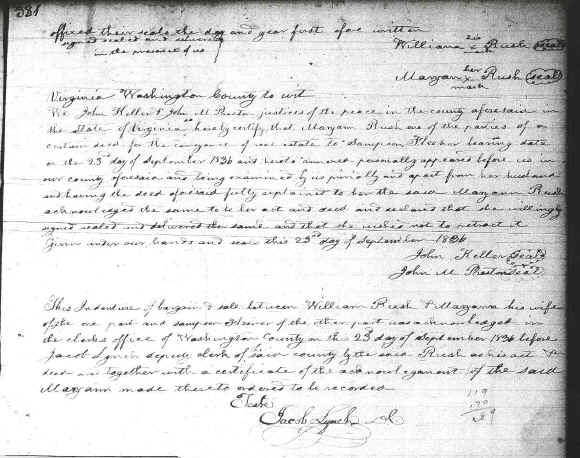 381
affixed their seals the day and year first afore written
signed sealed and delivered
in the presence of us
William his x Rush (seal)
Maryann her x mark Rush (seal)
Virginia Washington County to wit
We John Keller & John M Preston justices of the peace in the county aforesaid in
the state of Virginia hereby certify that Maryann Rush one of the parties of a
certain deed for the conveyance of real estate to Sampson bearing date
on the 23d day of September 1836 and hereto annexed personally appeared before us in
our county aforesaid and being examined by us privily and apart from her husband
and having the deed aforesaid fully explained to her she the said Maryann Rush
acknowledged the same to be her act and deed and declared that she willingly
signed sealed and delivered the same and that she wishes not to retract it
Given under our hands and seals this 23rd day of September 1836
John Keller (seal)
John M Preston (seal)
This Indenture of bargain & sale between William Rush & Maryann his wife
of the one part and Sampson of the other part was acknowledged in
the clerks office of Washington County on the 23d day of September 1836 before
Jacob Lynch deputy clerk of said county by the said Rush as his act &
deed and together with a certificate of the acknowledgment of the said
Maryann made thereto ordered to be recorded
Teste
Jacob Lynch
119